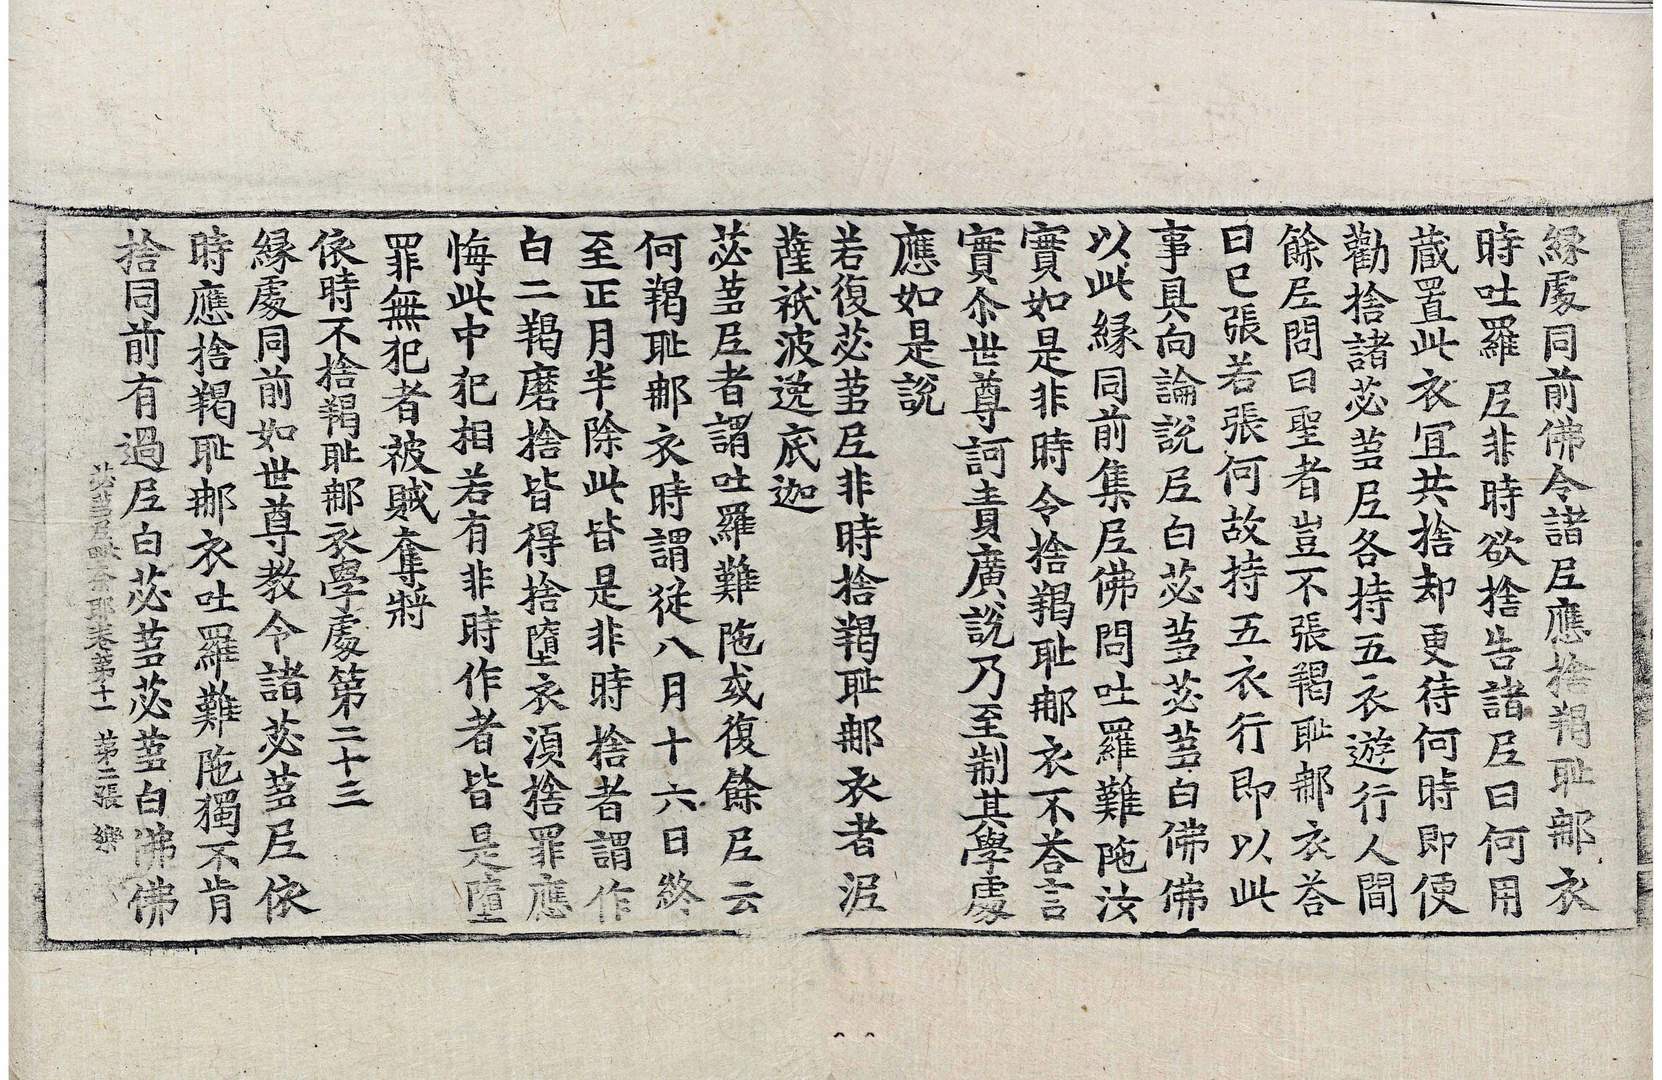 縁處同前佛令諸尼應捨羯耻那衣
時吐羅尼非時欲捨告諸尼曰何用
蔵置此衣冝共捨却更待何時即便
勸捨諸苾蒭尼各持五衣遊行人間
餘尼問曰聖者豈不張羯耻那衣荅
曰已張若張何故持五衣行即以此
事具向論說尼白苾蒭苾蒭白佛佛
以此縁同前集尼佛問吐羅難陁汝
實如是非時令捨羯耻那衣不荅言
實尒世尊訶責廣說乃至制其學處
應如是說
若復苾蒭尼非時捨羯耻那衣者泥
薩祇波逸底迦
苾蒭尼者謂吐羅難陁或復餘尼云
何羯耻那衣時謂從八月十六日終
至正月半除此皆是非時捨者謂作
白二羯磨捨皆得捨墮衣湏捨罪應
悔此中犯相若有非時作者皆是墮
罪無犯者被賊奪將
依時不捨羯耻那衣學處第二十三
縁處同前如世尊教令諸苾蒭尼依
時應捨羯耻那衣吐羅難陁獨不肯
捨同前有過尼白苾蒭苾蒭白佛佛
苾蒭尼毗奈耶卷第十一 第二張 樂